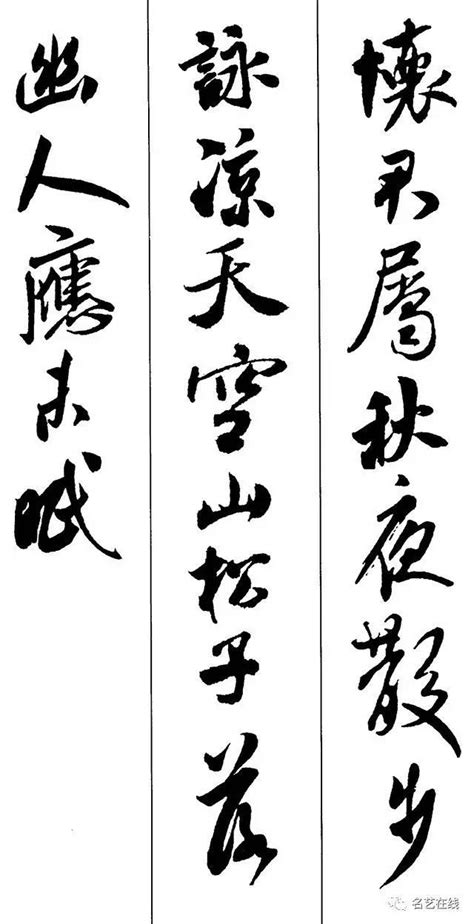 懷君屬秋夜散步
詠涼天空山松子落
幽人應未眠
名艺在线